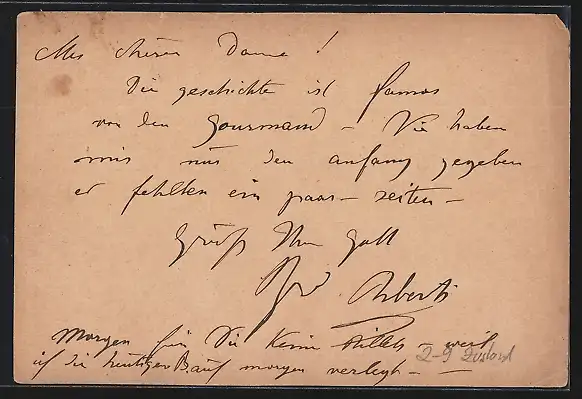 Dame !
Die geschichte ist famos
von den Gourmand – Sie haben
mir nur den anfang gegeben
er fehlten ein paar – seiten –
Grüß Ihn Gott
Ihr Alberti
Morgen für Sie keine Billets – weil
ich die heutigen auf morgen verlegt –
2-9